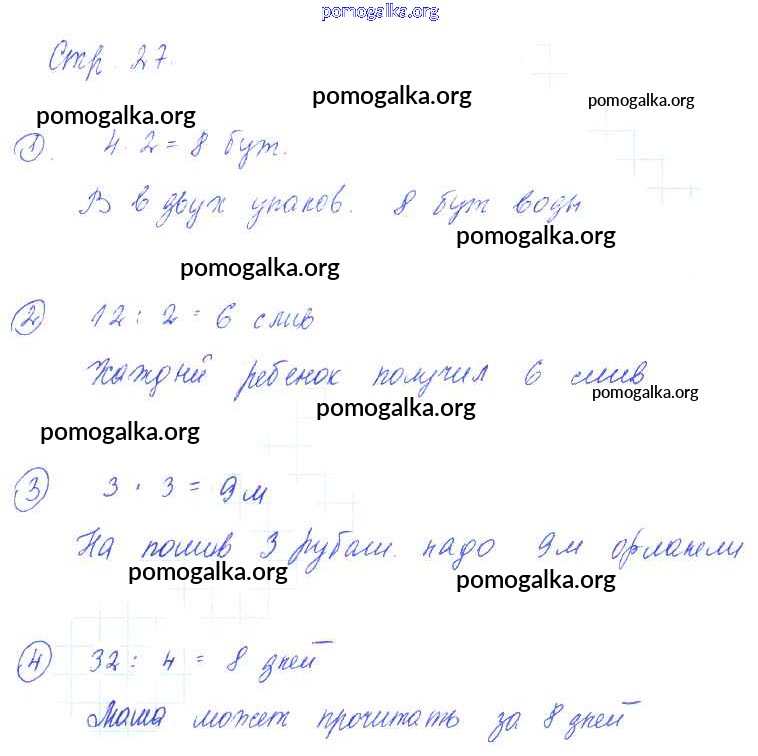 pomogalka.org
Стр. 27.
pomogalka.org
pomogalka.org
pomogalka.org
1. 4 · 2 = 8 бут.
В в двух упаков. 8 бут воды
pomogalka.org
pomogalka.org
2 12 : 2 = 6 слив
Каждый ребенок получил 6 слив
pomogalka.org
pomogalka.org
pomogalka.org
3 3 · 3 = 9 м
На пошив 3 рубаш. надо 9м фланели
pomogalka.org
pomogalka.org
4 32 : 4 = 8 дней
Мама может прочитать за 8 дней